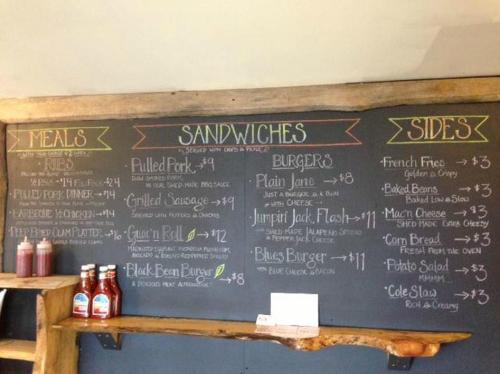 MEALS
RIBS
PULLED PORK DINNER $14
BARBECUE CHICKEN $14
DEEP FRIED CLAM PLATTER
SANDWICHES
SERVED WITH CHIPS & PICKLE
Pulled Pork → $9
Grilled Sausage → $9
SERVED WITH PEPPERS & ONIONS
Guac'n Roll → $12
Black Bean Burger → $8
A DELICIOUS MEAT ALTERNATIVE
BURGERS
Plain Jane → $8
JUST A BURGER & A BUN
WITH CHEESE
Jumpin' Jack Flash → $11
SHED MADE JALAPEÑO SPREAD
& PEPPER JACK CHEESE
Blues Burger → $11
BLUE CHEESE & BACON
SIDES
French Fries → $3
Golden & Crispy
Baked Beans → $3
Baked Low & Slow
Mac'n Cheese → $3
SHED MADE CHEESY
Corn Bread → $3
FRESH FROM THE OVEN
Potato Salad → $3
MMMM...
Cole Slaw → $3
Rich & Creamy